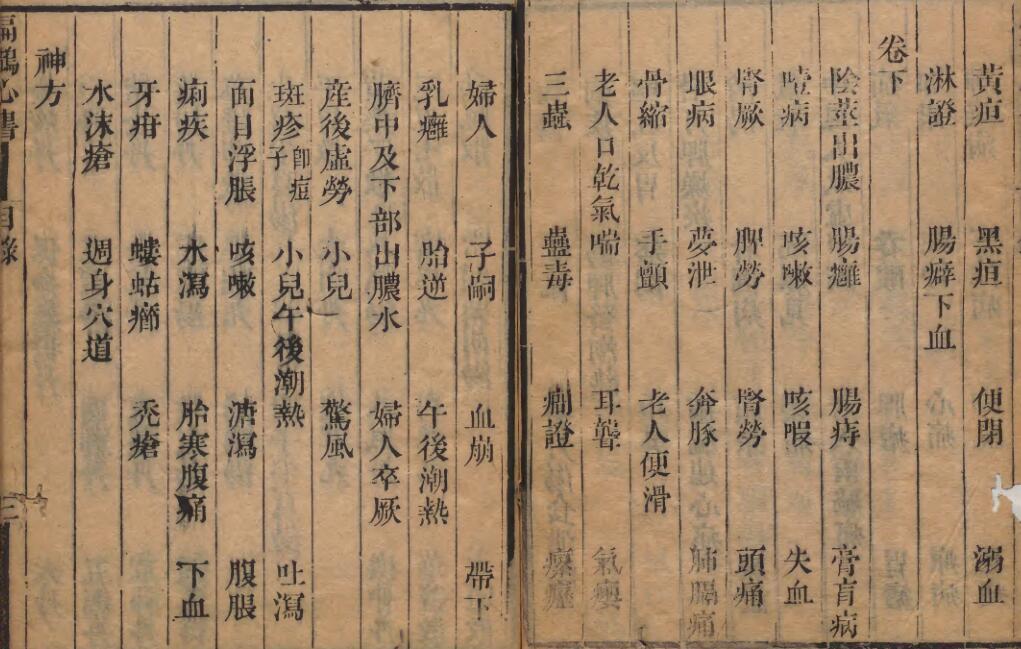 黃疸 黑疸 便閉 溺血
淋證 腸癖下血
卷下
陰莖出膿 腸癰 腸痔 膏肓病
噎病 咳嗽 咳嘏 失血
腎厥 脾勞 腎勞 頭痛
眼病 夢泄 奔豚 肺膈痛
骨縮 手顫 老人便滑
老人口乾氣喘 耳聾 氣癭
三蟲 蠱毒 痼證 瘰癧
婦人 子嗣 血崩 帶下
乳癰 胎逆 午後潮熱
臍中及下部出膿水 婦人卒厥
産後虛勞 小兒 驚風
斑疹即痘子 小兒午後潮熱 吐瀉
面目浮脹 咳嗽 溏瀉 腹脹
痢疾 水瀉 胎寒腹痛 下血
牙疳 螻蛄癤 禿瘡
水沫瘡 週身穴道
神方
扁鵲心書 目錄 三